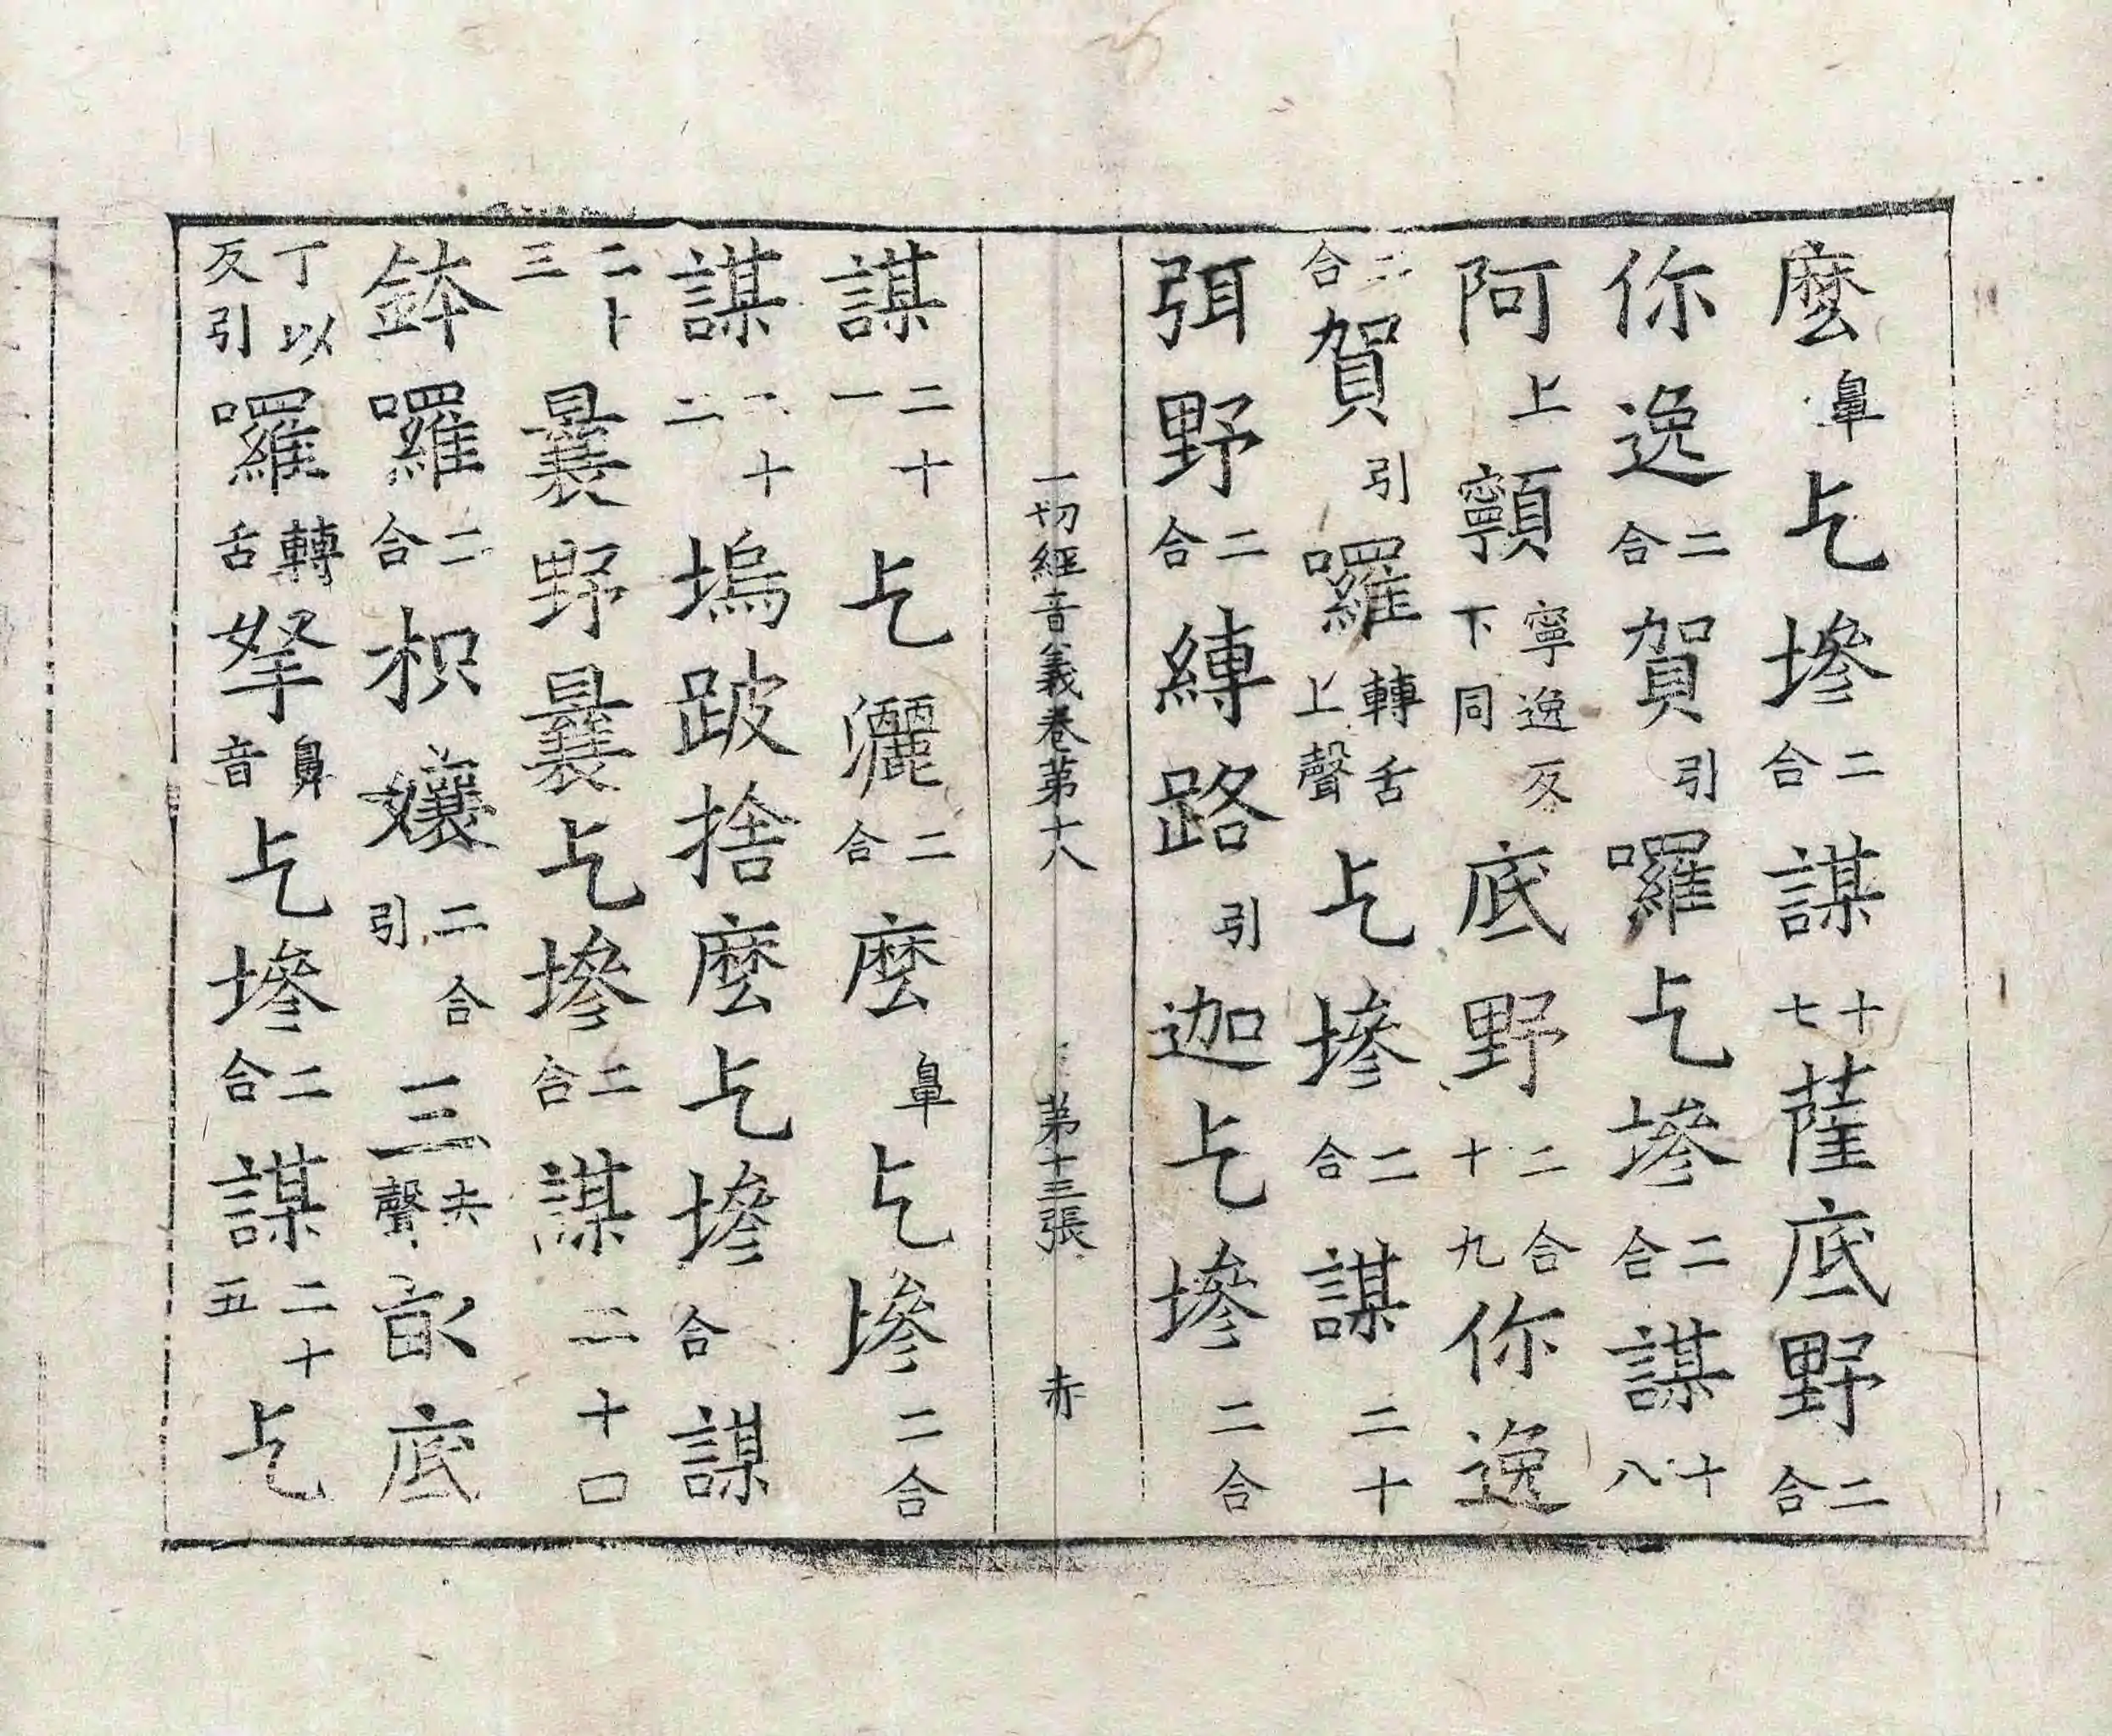 麽鼻乞墋二合謀十七薩底野二合
你逸二合賀引囉乞墋二合謀十八
阿上顊寧逸反下同底野二合十九你逸
二合賀引囉轉舌上聲乞墋二合謀二十
弭野二合縛路引迦乞墋二合
一切經音義卷第十八 第十三張 赤
謀二十一乞灑二合麽鼻乞墋二合
謀二十二塢跛捨麽乞墋合謀
二十三曩野曩乞墋二合謀二十口
鉢囉二合枳孃二合引三去聲底
丁以反引囉轉舌拏鼻音乞墋二合謀二十五乞